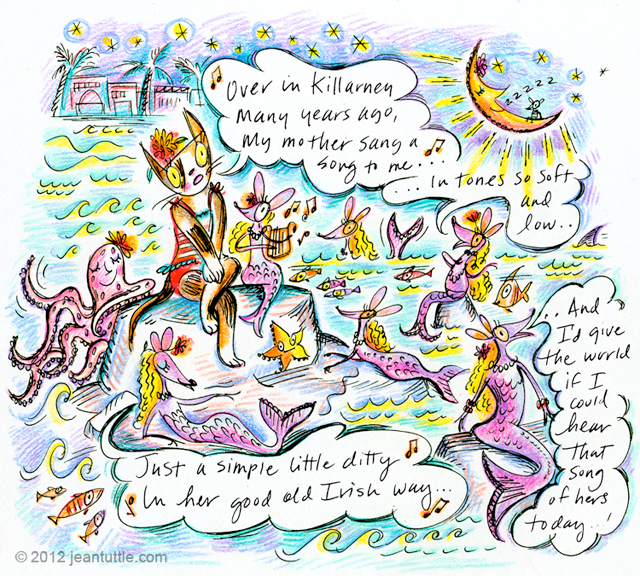 Over in Killarney
Many years ago,
My mother sang a
song to me....
zzzzz
...In tones so soft
and
low..
Just a simple little ditty
In her good old Irish way...
..And
I'd give
the world
if I
could
hear
that
song
of hers
today..!
© 2012 jeantuttle.com